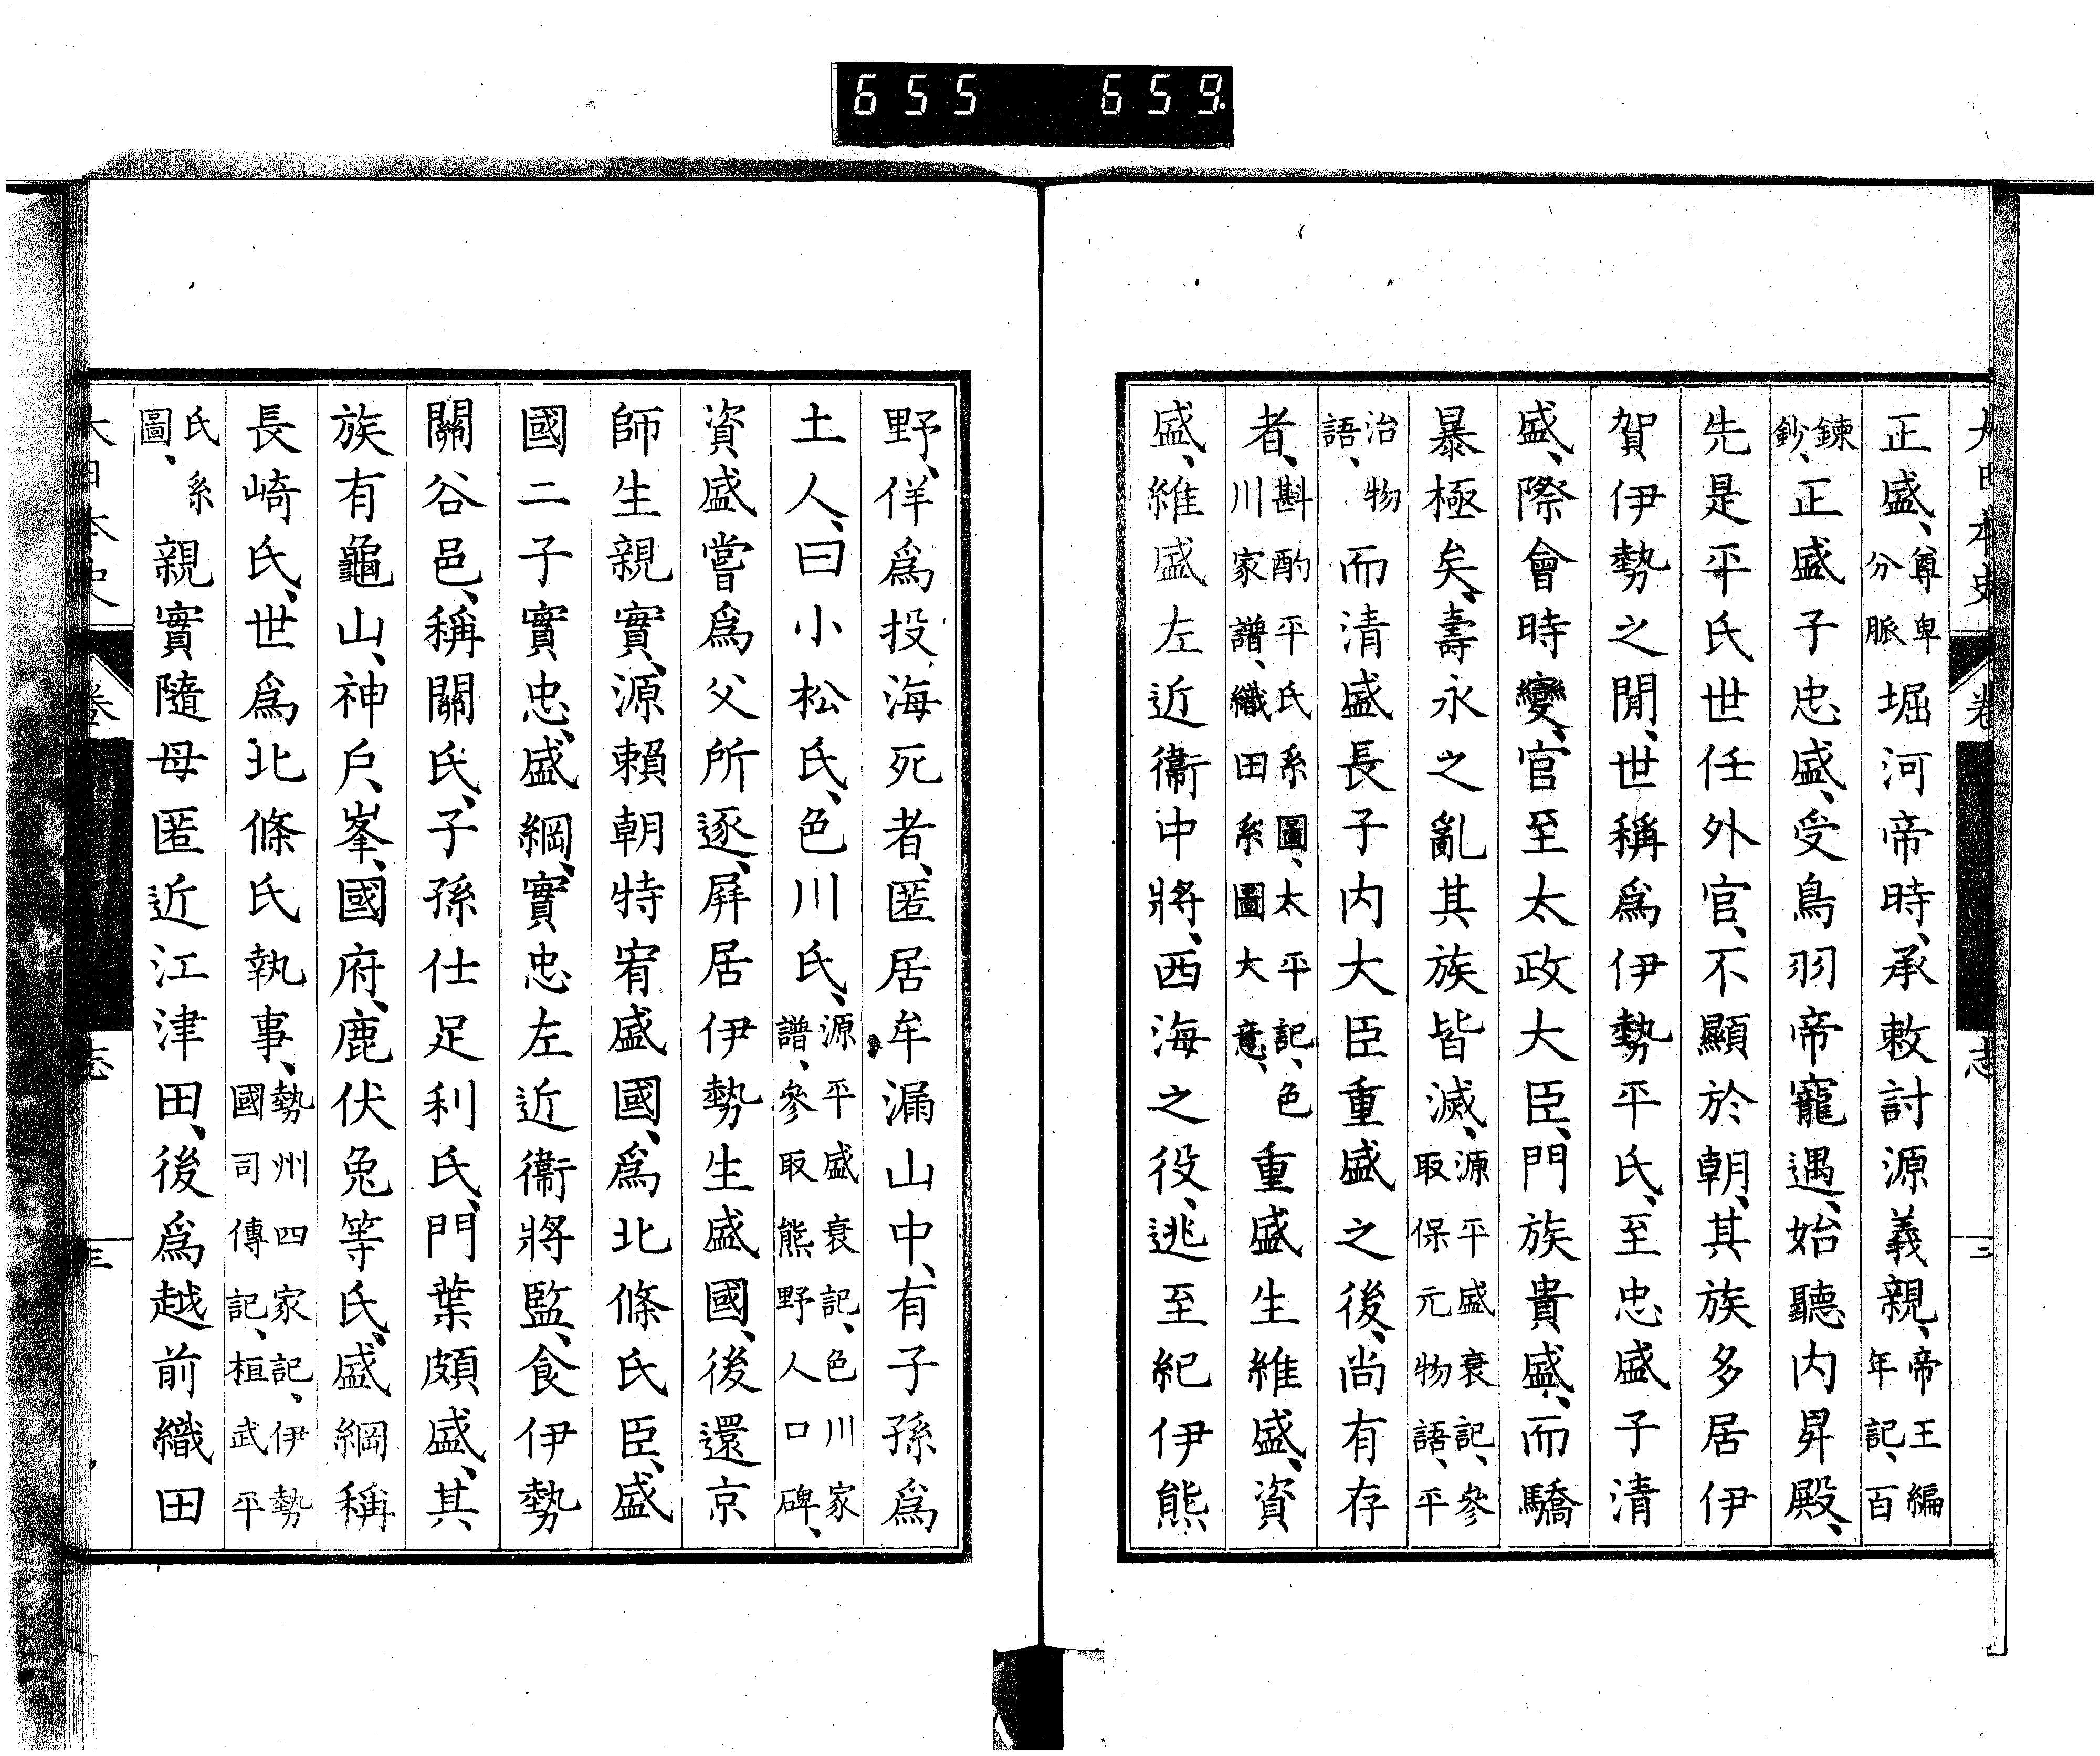 655 659
大日本史 卷 志 三
正盛、尊卑分脈堀河帝時、承敕討源義親、帝王編年記、百
鍊鈔、正盛子忠盛、受鳥羽帝寵遇、始聽内昇殿、
先是平氏世任外官、不顯於朝、其族多居伊
賀伊勢之閒、世稱爲伊勢平氏、至忠盛子清
盛、際會時變、官至太政大臣、門族貴盛、而驕
暴極矣、壽永之亂其族皆滅、源平盛衰記、參取保元物語、平
治物語、而清盛長子内大臣重盛之後、尚有存
者、斟酌平氏系圖、太平記、色川家譜、織田系圖大意、重盛生維盛、資
盛、維盛左近衞中將、西海之役、逃至紀伊熊
野、佯爲投海死者、匿居牟漏山中、有子孫爲
土人、曰小松氏、色川氏、源平盛衰記、色川家譜、參取熊野人口碑、
資盛嘗爲父所逐、屏居伊勢生盛國、後還京
師生親實、源賴朝特宥盛國、爲北條氏臣、盛
國二子實忠、盛綱、實忠左近衞將監、食伊勢
關谷邑、稱關氏、子孫仕足利氏、門葉頗盛、其
族有龜山、神戶、峯、國府、鹿伏兔等氏、盛綱稱
長崎氏、世爲北條氏執事、勢州四家記、伊勢國司傳記、桓武平
氏系圖、親實隨母匿近江津田、後爲越前織田
大日本史 卷 志 三